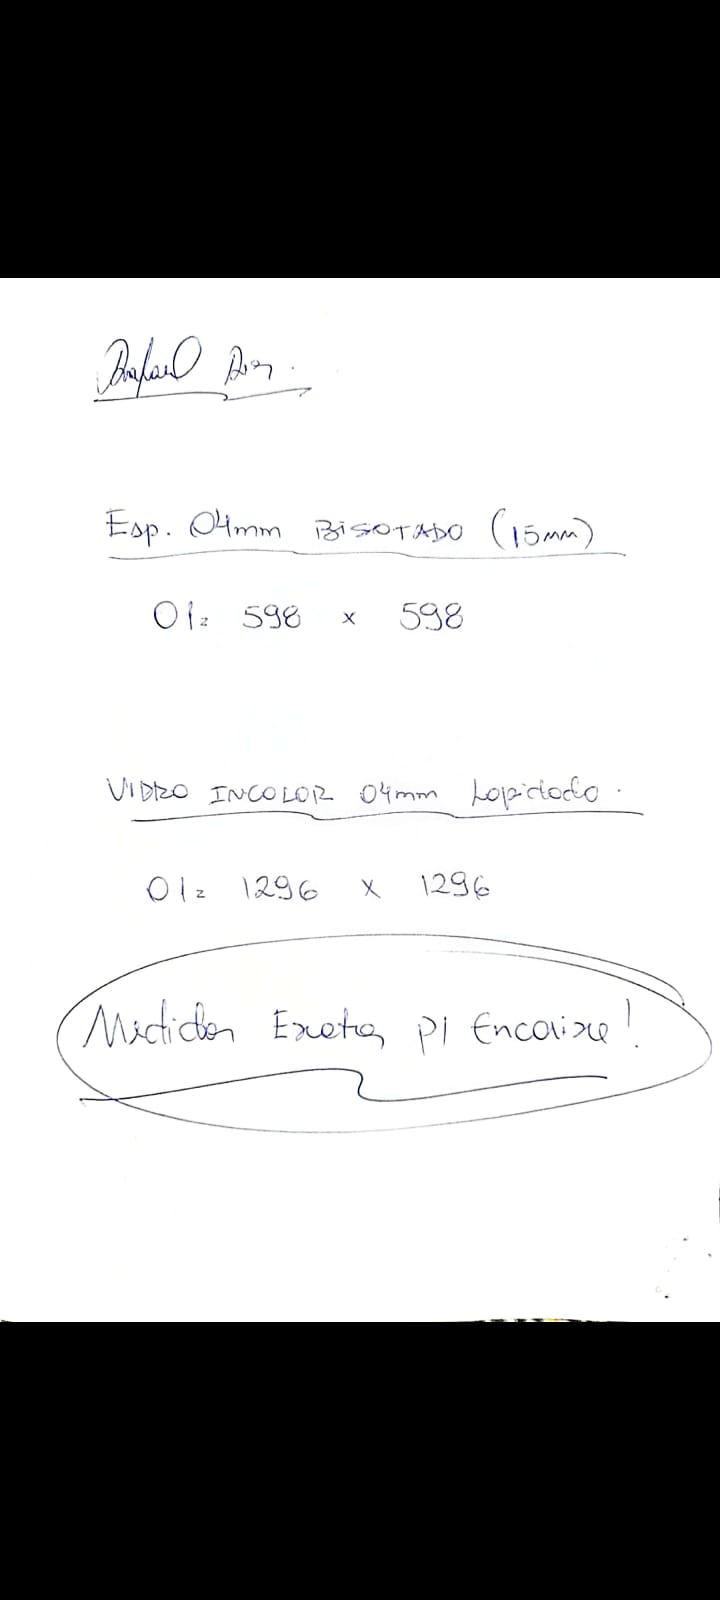 Rafael
Esp. 04mm BISOTADO (15mm)
01= 598 x 598
VIDRO INCOLOR 04mm Lapidado.
01= 1296 x 1296
Medidas Exatas p/ Encaixe!